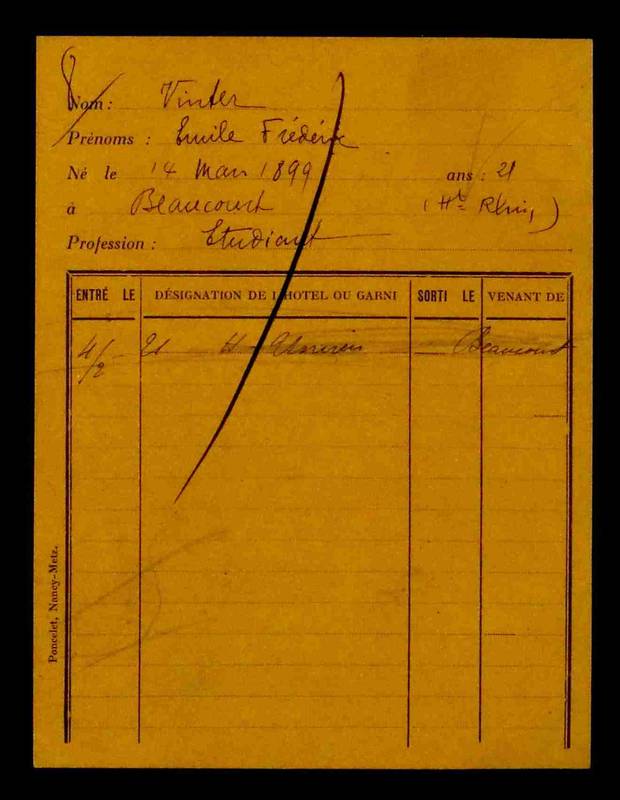 Nom : Vinter
Prénoms : Emile Fréderic
Né le 14 Mars 1899 ans : 21
à Beaucourt (Ht Rhin)
Profession : Etudiant
ENTRÉ LE DÉSIGNATION DE L'HOTEL OU GARNI SORTI LE VENANT DE
4/2 21 H Beaucourt
Poncelet, Nancy-Metz.